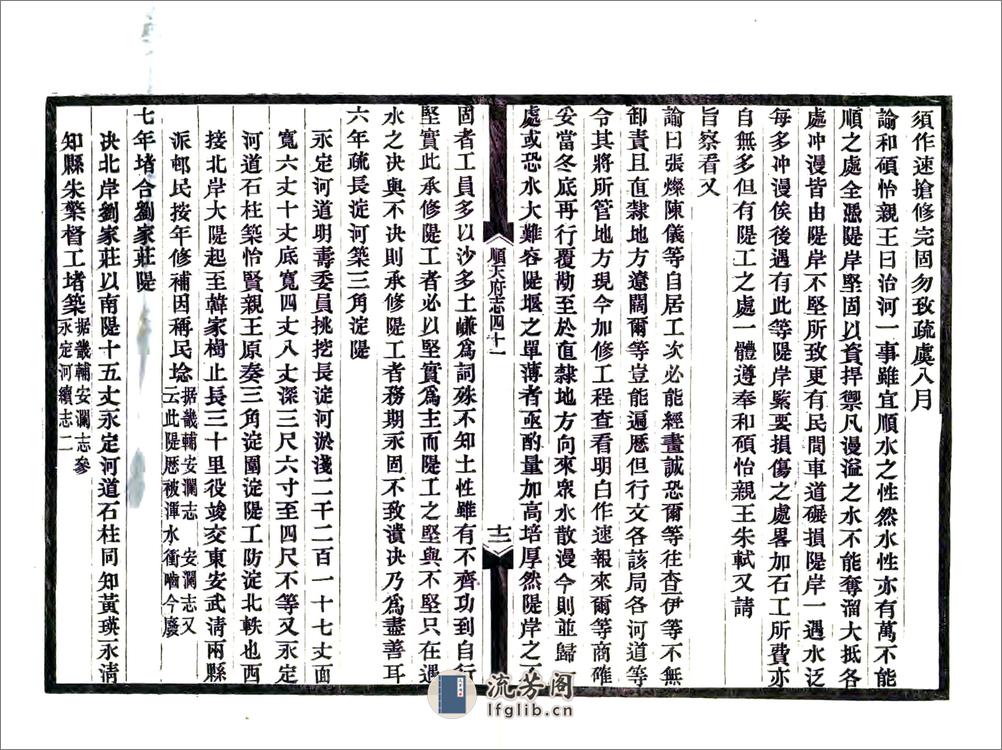 須作速搶修完固勿致疏虞八月
諭和碩怡親王曰治河一事雖宜順水之性然水性亦有萬不能
順之處全憑隄岸堅固以資捍禦凡漫溢之水不能奪溜大抵各
處冲漫皆由隄岸不堅所致更有民間車道碾損隄岸一遇水泛
每多冲漫俟後遇有此等隄岸緊要損傷之處畧加石工所費亦
自無多但有隄工之處一體遵奉和碩怡親王朱軾又請
旨察看又
諭曰張燦陳儀等自居工次必能經畫誠恐爾等往查伊等不無
卸責且直隸地方遼闊爾等豈能遍歷但行文各該局各河道等
令其將所管地方現今加修工程查看明白作速報來爾等商確
妥當冬底再行覆勘至於直隸地方向來衆水散漫今則並歸一
處或恐水大難容隄堰之單薄者亟酌量加高培厚然隄岸之不
順天府志四十一
十二
固者工員多以沙多土鹻爲詞殊不知土性雖有不齊功到自行
堅實此承修隄工者必以堅實爲主而隄工之堅與不堅只在遇
水之決與不決則承修隄工者務期永固不致潰決乃爲盡善耳
六年疏長淀河築三角淀隄
永定河道明壽委員挑挖長淀河淤淺二千二百一十七丈面
寬六丈十丈底寬四丈八丈深三尺六寸至四尺不等又永定
河道石柱築怡賢親王原奏三角淀圍淀隄工防淀北軼也西
接北岸大隄起至韓家樹止長三十里役竣交東安武淸兩縣
派邨民按年修補因稱民埝据畿輔安瀾志 安瀾志又
云此隄歷被渾水衝嚙今廢
七年堵合劉家莊隄
決北岸劉家莊以南隄十五丈永定河道石柱同知黃瑛永淸
知縣朱棻督工堵築据畿輔安瀾志參
永定河續志二
流芳阁
lfglib.cn